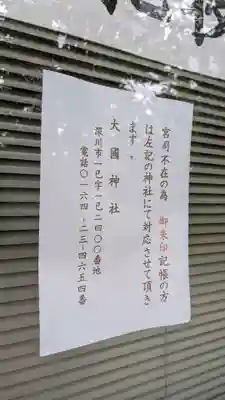 宮司不在の為 御朱印記帳の方
は左記の神社にて対応させて頂き
ます。
大國神社
深川市一已字一已二四〇〇番地
電話〇一六四-二三-四六五四番